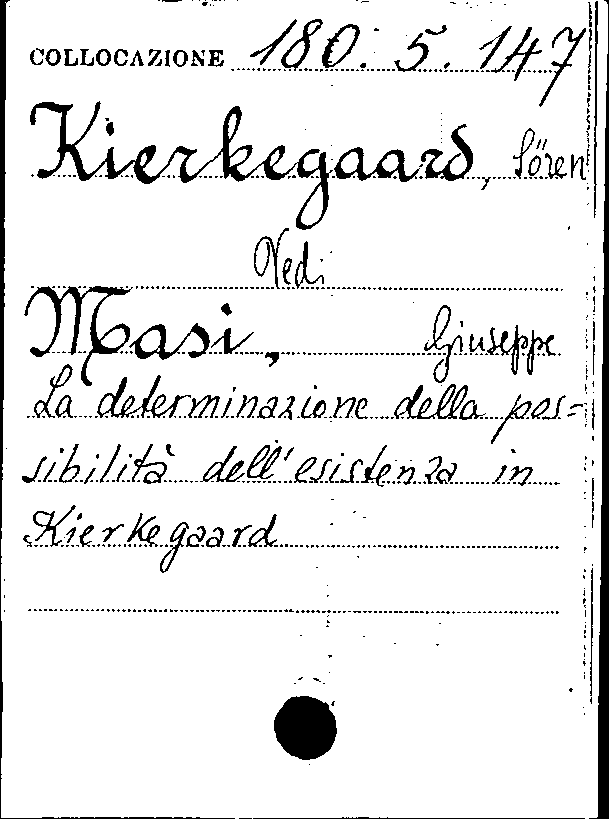 COLLOCAZIONE 180. 5. 147
Kierkegaard, Sören
Vedi
Masi, Giuseppe
La determinazione della pos=
sibilità dell'esistenza in
Kierkegaard